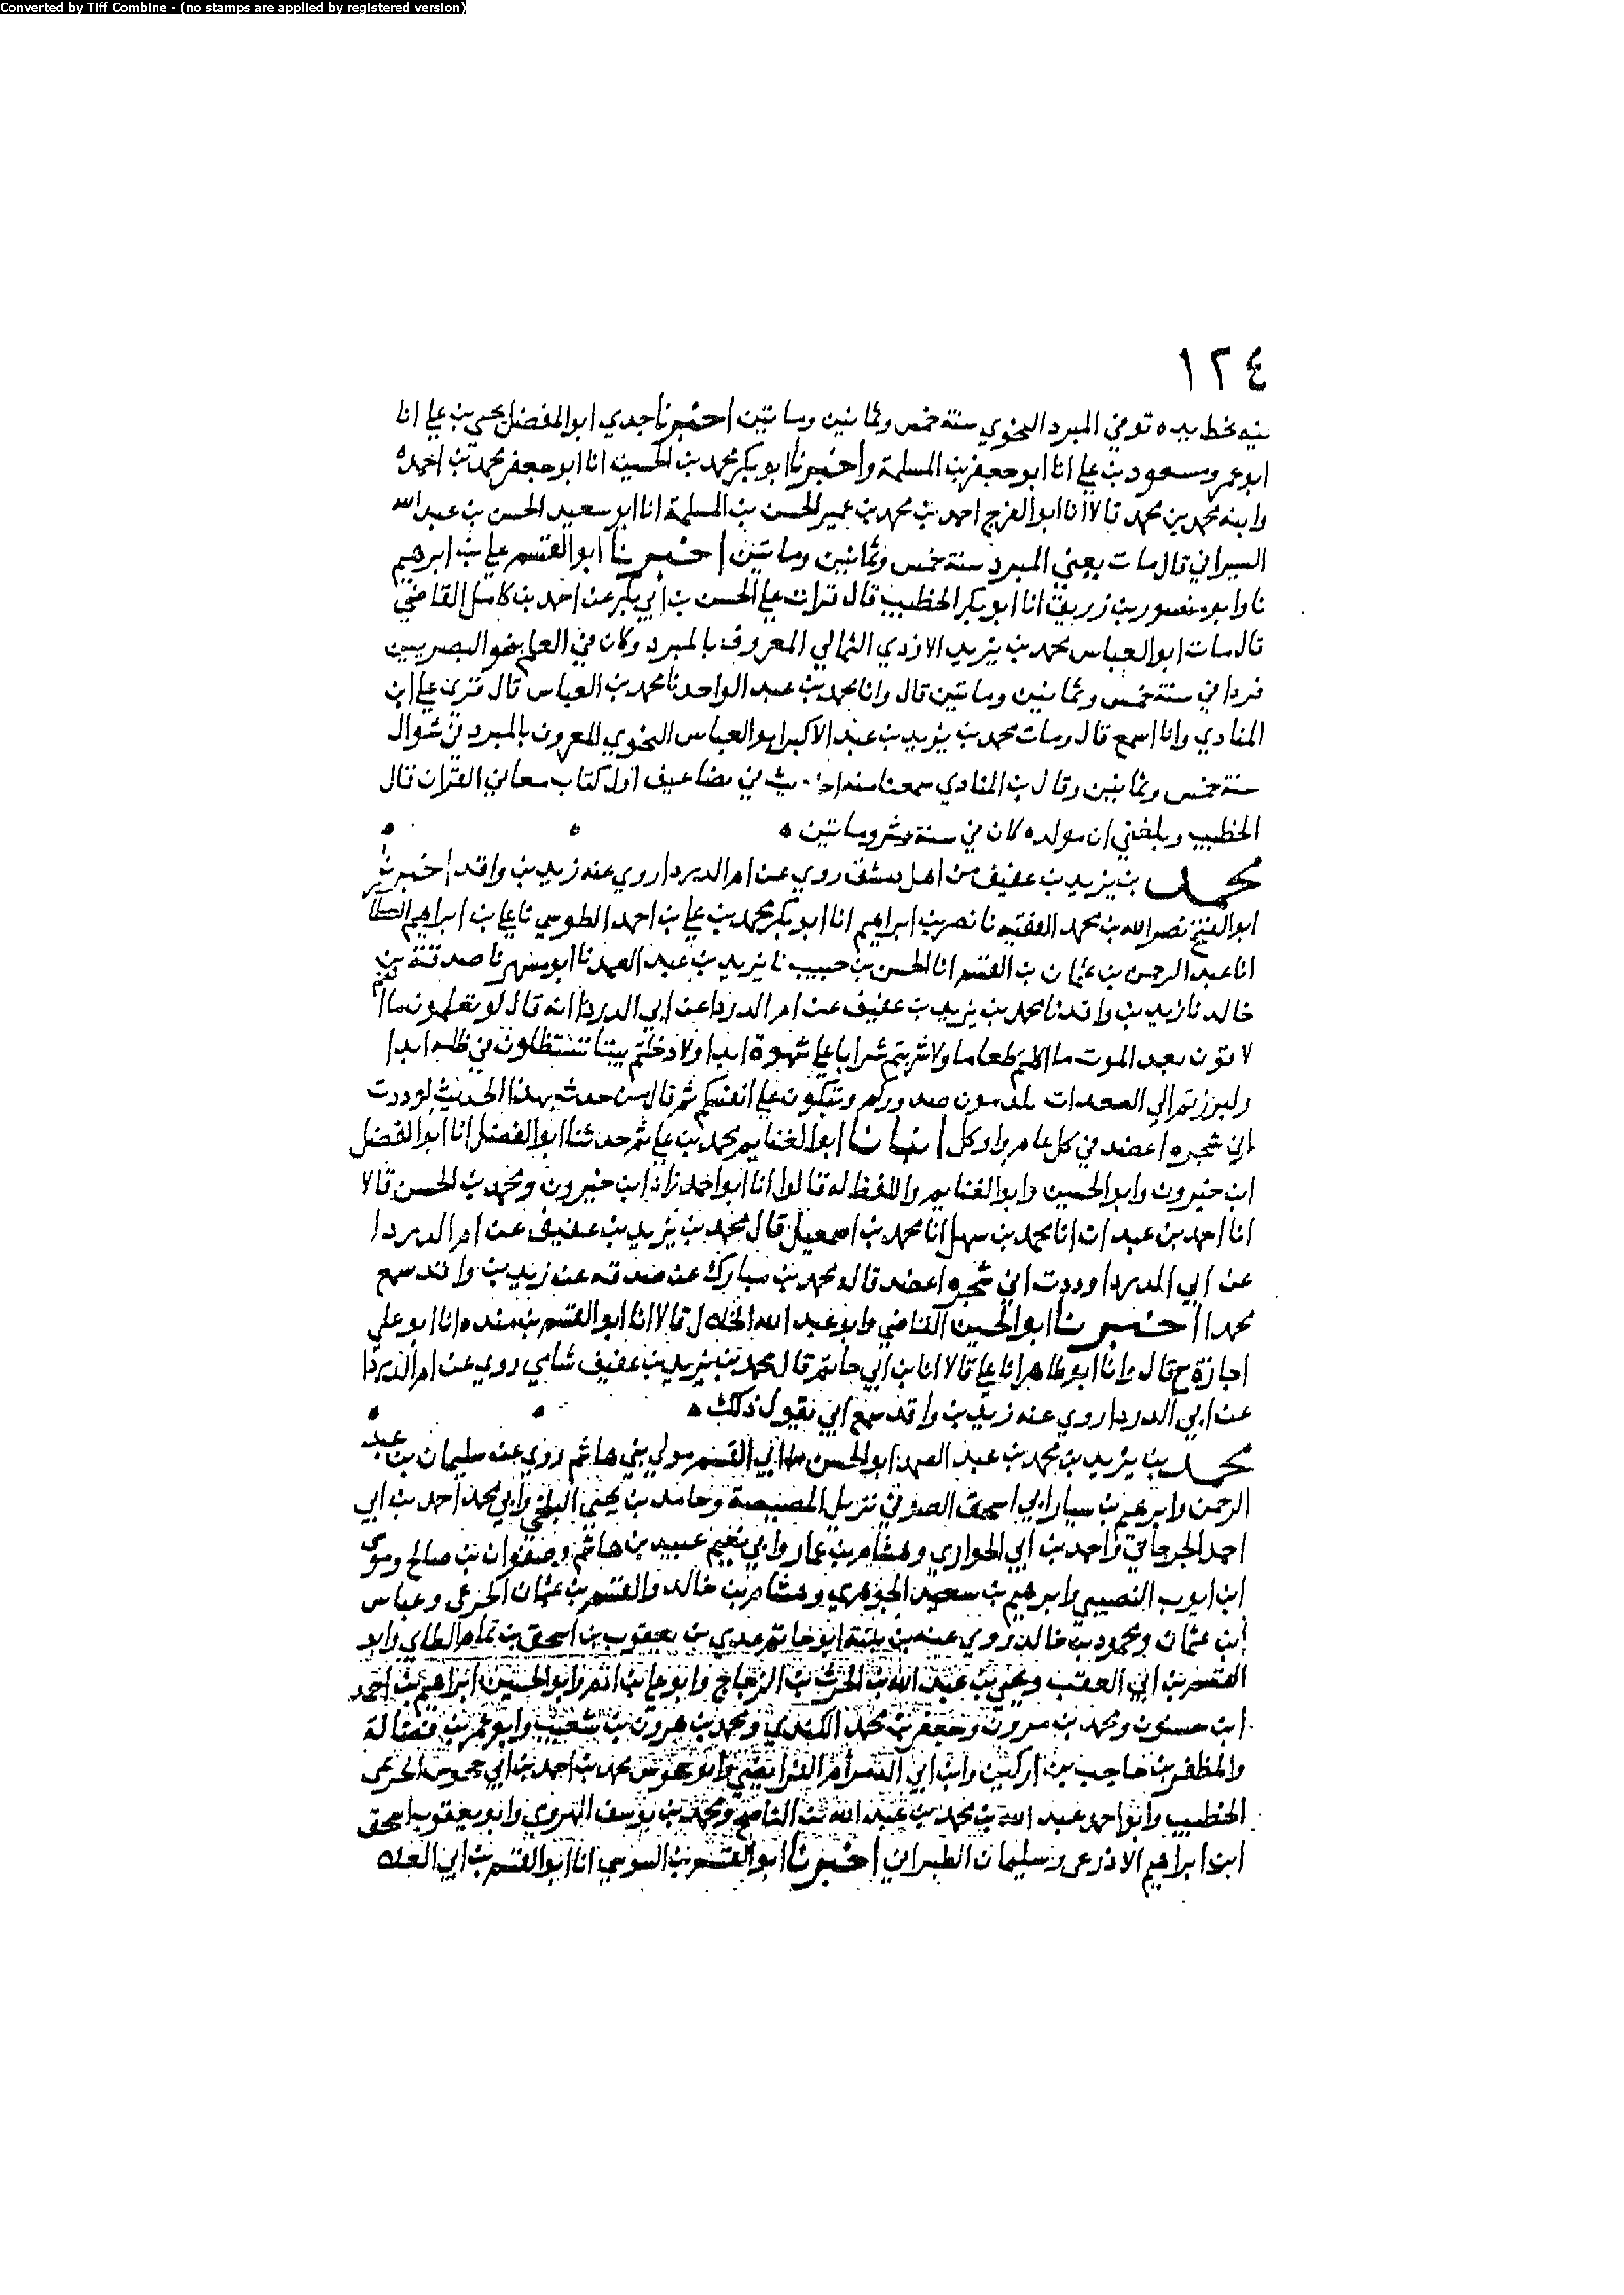 Converted by Tiff Combine - (no stamps are applied by registered version)
١٢٤
بخط بيده توفي المبرد النحوي سنة خمس وثمانين ومائتين اخبرنا جدي ابو المفضل يحيى بن علي انا
ابو عمرو مسعود بن علي انا ابو جعفر بن المسلمة واخبرنا ابو بكر محمد بن الحسين انا ابو جعفر محمد بن احمد
وابنه محمد بن محمد قالا انا ابو الفرج احمد بن محمد بن عمر الحسن بن المسلمة انا ابو سعيد الحسن بن عبد الله
السيرافي قال مات يعني المبرد سنة خمس وثمانين ومائتين اخبرنا ابو القسم علي بن ابرهيم
نا وابو منصور بن زريق انا ابو بكر الخطيب قال قرات علي الحسن بن ابي بكر عن احمد بن كامل القاضي
قال مات ابو العباس محمد بن يزيد الازدي الثمالي المعروف بالمبرد وكان في العلم بنحو البصريين
فردا في سنة خمس وثمانين ومائتين قال وانا محمد بن عبد الواحد نا محمد بن العباس قال قرئ علي ابن
المنادي وانا اسمع قال ومات محمد بن يزيد بن عبد الاكبر ابو العباس النحوي المعروف بالمبرد في شوال
سنة خمس وثمانين وقال بن المنادي سمعنا منه في مضاعيف اول كتاب معاني القران قال
الخطيب وبلغني ان مولده كان في سنة عشر ومائتين ه
محمد بن يزيد بن عفيف من اهل دمشق روي عن ام الدردا روي عنه زيد بن واقد اخبرنا
ابو الفتح نصر الله بن محمد الفقيه نا نصر بن ابراهيم انا ابو بكر محمد بن علي بن احمد الطوسي نا علي بن ابراهيم
انا عبد الرحمن بن عثمان بن القسم انا الحسن بن حبيب نا يزيد بن عبد الصمد نا ابو مسهر نا صدقة بن
خالد نا زيد بن واقد نا محمد بن يزيد بن عفيف عن ام الدردا عن ابي الدردا انه قال لو تعلمون ما انتم
لاقون بعد الموت ما اكلتم طعاما ولا شربتم شرابا علي شهوة ابدا ولا دخلتم بيتا تستظلون في ظله ابدا
ولبرزتم الي الصعدات تلدمون صدوركم وتبكون علي انفسكم ثم قال من حدث بهذا الحديث لوددت
اني شجره اعضد في كل عام واوكل انبانا ابو الغنايم محمد بن علي ثم حدثنا ابو الفضل انا ابو الفضل
ابن خيرون وابو الحسين وابو الغنايم واللفظ له قالوا انا ابو احمد زاد ابن خيرون ومحمد بن الحسن قالا
انا احمد بن عبدان انا محمد بن سهل انا محمد بن اسمعيل قال محمد بن يزيد بن عفيف عن ام الدردا
عن ابي الدردا وددت اني شجره اعضد قاله محمد بن مبارك عن صدقه عن زيد بن واقد سمع
محمدا اخبرنا ابو الحسين القاضي وابو عبد الله الخلال قالا انا ابو القسم بن منده انا ابو علي
اجازة ح قال وانا ابو طاهر انا علي قالا انا بن ابي حاتم قال محمد بن يزيد بن عفيف شامي روي عن ام الدردا
عن ابي الدردا روي عنه زيد بن واقد سمع ابي يقول ذلك ه
محمد بن يزيد بن محمد بن عبد الصمد ابو الحسن بن ابي القسم مولي بني هاشم روي عن سليمان بن عبد
الرحمن وابرهيم بن سيار ابي اسحق الصوفي نزيل المصيصة وحامد بن يحيى البلخي وابي محمد احمد بن ابي
احمد الجرجاني واحمد بن ابي الحواري وهشام بن عمار وابي نعيم عبيد بن هاشم وصفوان بن صالح وموسى
ابن ايوب النصيبي وابرهيم بن سعيد الجوهري وهشام بن خالد والقسم بن عثمان الجرعي وعباس
ابن عثمان ومحمود بن خالد روي عنه ابو حاتم عدي بن يعقوب بن اسحق بن تمام الطاي وابو
القسم بن ابي العقب ويحيي بن عبد الله بن الحرث بن الزجاج وابو علي بن ادم وابو الحسين ابراهيم بن احمد
ابن حسنون ومحمد بن هرون وجعفر بن محمد الكندي ومحمد بن هرون بن شعيب وابو عمر بن فضالة
والمظفر بن حاجب بن اركين وابن ابي الفرايضي وابو محمد بن احمد بن ابي جحوش الخريمي
الخطيب وابو احمد عبد الله بن محمد بن عبد الله بن الناصح ومحمد بن يوسف الهروي وابو يعقوب اسحق
ابن ابراهيم الاذرعي وسليمان الطبراني اخبرنا ابو القسم بن السوسي انا ابو القسم بن ابي العلا